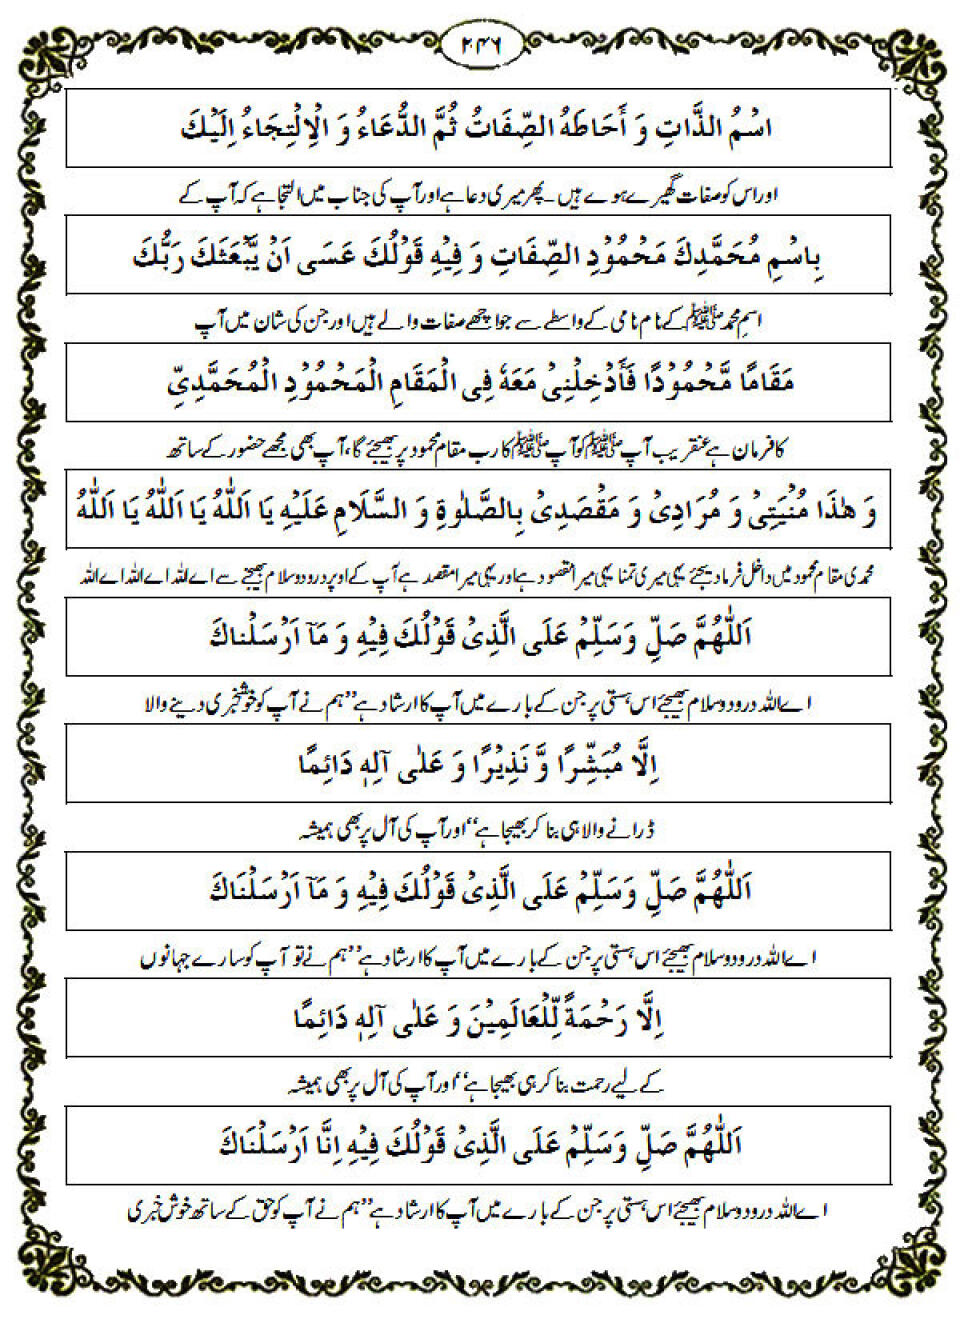 ۲۴۶
اسْمُ الذَّاتِ وَ أَحَاطَهُ الصِّفَاتُ ثُمَّ الدُّعَاءُ وَ الْاِلْتِجَاءُ اِلَيْكَ
اور اس کو صفات گھیرے ہوے ہیں۔ پھر میری دعا ہے اور آپ کی جناب میں التجا ہے کہ آپ کے
بِاسْمِ مُحَمَّدِكَ مَحْمُوْدِ الصِّفَاتِ وَ فِيْهِ قَوْلُكَ عَسَى اَنْ يَّبْعَثَكَ رَبُّكَ
اسمِ محمد ﷺ کے نام نامی کے واسطے سے جو اچھے صفات والے ہیں اور جن کی شان میں آپ
مَقَامًا مَّحْمُوْدًا فَأَدْخِلْنِىْ مَعَهٗ فِى الْمَقَامِ الْمَحْمُوْدِ الْمُحَمَّدِىِّ
کا فرمان ہے عنقریب آپ ﷺ کو آپ ﷺ کا رب مقام محمود پر بھیجئے گا، آپ بھی مجھے حضور کے ساتھ
وَ هٰذَا مُنْيَتِىْ وَ مُرَادِىْ وَ مَقْصَدِىْ بِالصَّلٰوةِ وَ السَّلَامِ عَلَيْهِ يَا اَللّٰهُ يَا اَللّٰهُ يَا اَللّٰهُ
محمدی مقام محمود میں داخل فرما دیجئے یہی میری تمنا یہی میرا مقصود ہے اور یہی میرا مقصد ہے آپ کے اوپر درود و سلام بھیجنے سے اے اللہ اے اللہ اے اللہ
اَللّٰهُمَّ صَلِّ وَسَلِّمْ عَلَى الَّذِىْ قَوْلُكَ فِيْهِ وَ مَآ اَرْسَلْنَاكَ
اے اللہ درود و سلام بھیجئے اس ہستی پر جن کے بارے میں آپ کا ارشاد ہے ’’ہم نے آپ کو خوشخبری دینے والا
اِلَّا مُبَشِّرًا وَّ نَذِيْرًا وَ عَلٰى آلِهٖ دَائِمًا
ڈرانے والا ہی بنا کر بھیجا ہے‘‘ اور آپ کی آل پر بھی ہمیشہ
اَللّٰهُمَّ صَلِّ وَسَلِّمْ عَلَى الَّذِىْ قَوْلُكَ فِيْهِ وَ مَآ اَرْسَلْنَاكَ
اے اللہ درود و سلام بھیجئے اس ہستی پر جن کے بارے میں آپ کا ارشاد ہے ’’ہم نے تو آپ کو سارے جہانوں
اِلَّا رَحْمَةً لِّلْعَالَمِيْنَ وَ عَلٰى آلِهٖ دَائِمًا
کے لیے رحمت بنا کر ہی بھیجا ہے‘‘ اور آپ کی آل پر بھی ہمیشہ
اَللّٰهُمَّ صَلِّ وَسَلِّمْ عَلَى الَّذِىْ قَوْلُكَ فِيْهِ اِنَّا اَرْسَلْنَاكَ
اے اللہ درود و سلام بھیجئے اس ہستی پر جن کے بارے میں آپ کا ارشاد ہے ’’ہم نے آپ کو حق کے ساتھ خوش خبری